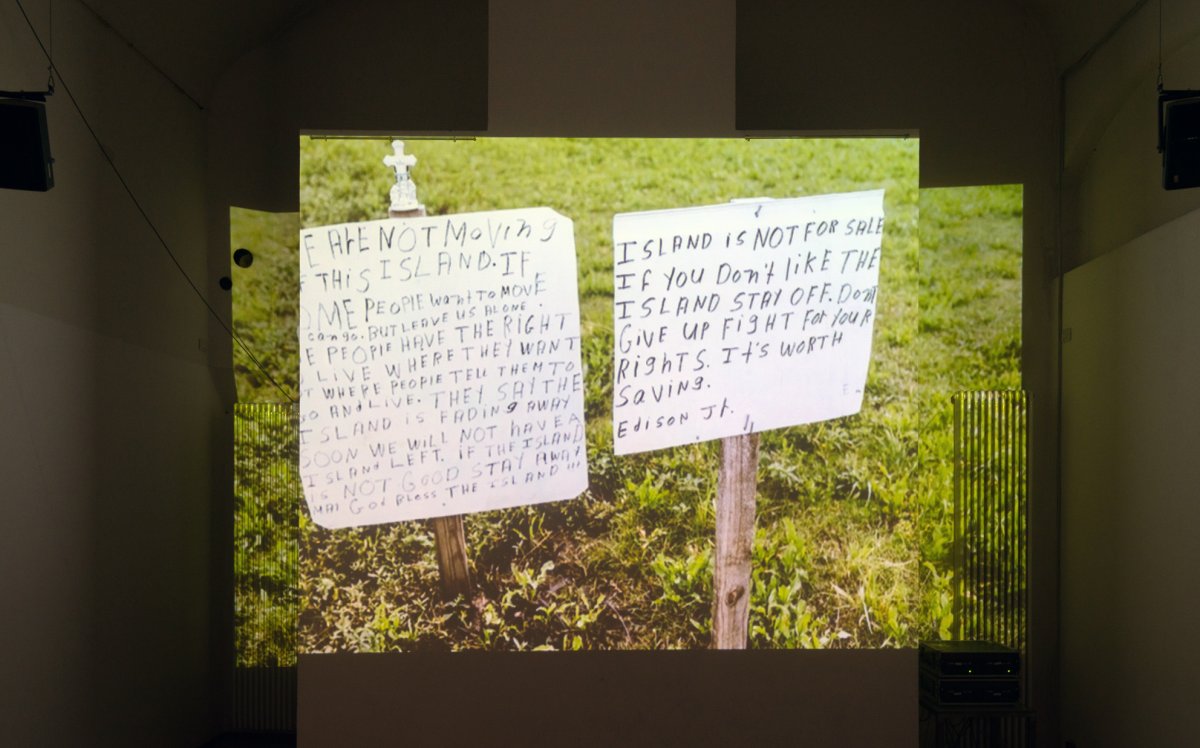 E ARE NOT MOVING
F THIS ISLAND. IF
OME PEOPLE WANT TO MOVE
can go. BUT LEAVE US ALONE.
E PEOPLE HAVE THE RIGHT
LIVE WHERE THEY WANT
T WHERE PEOPLE TELL THEM TO
GO AND LIVE. THEY SAY THE
ISLAND IS FADING AWAY
SOON WE WILL NOT HAVE A
ISLAND LEFT. IF THE ISLAND
IS NOT GOOD STAY AWAY
MAY GOd BLESS THE ISLAND !!!
ISLAND iS NOT FOR SALE
If YOU DON't liKE THE
ISLAND STAY OFF. DON'T
GIVE UP FIGHT FOR YOUR
RIGHTS. It's WORTH
SAVING.
EDISON Jr.